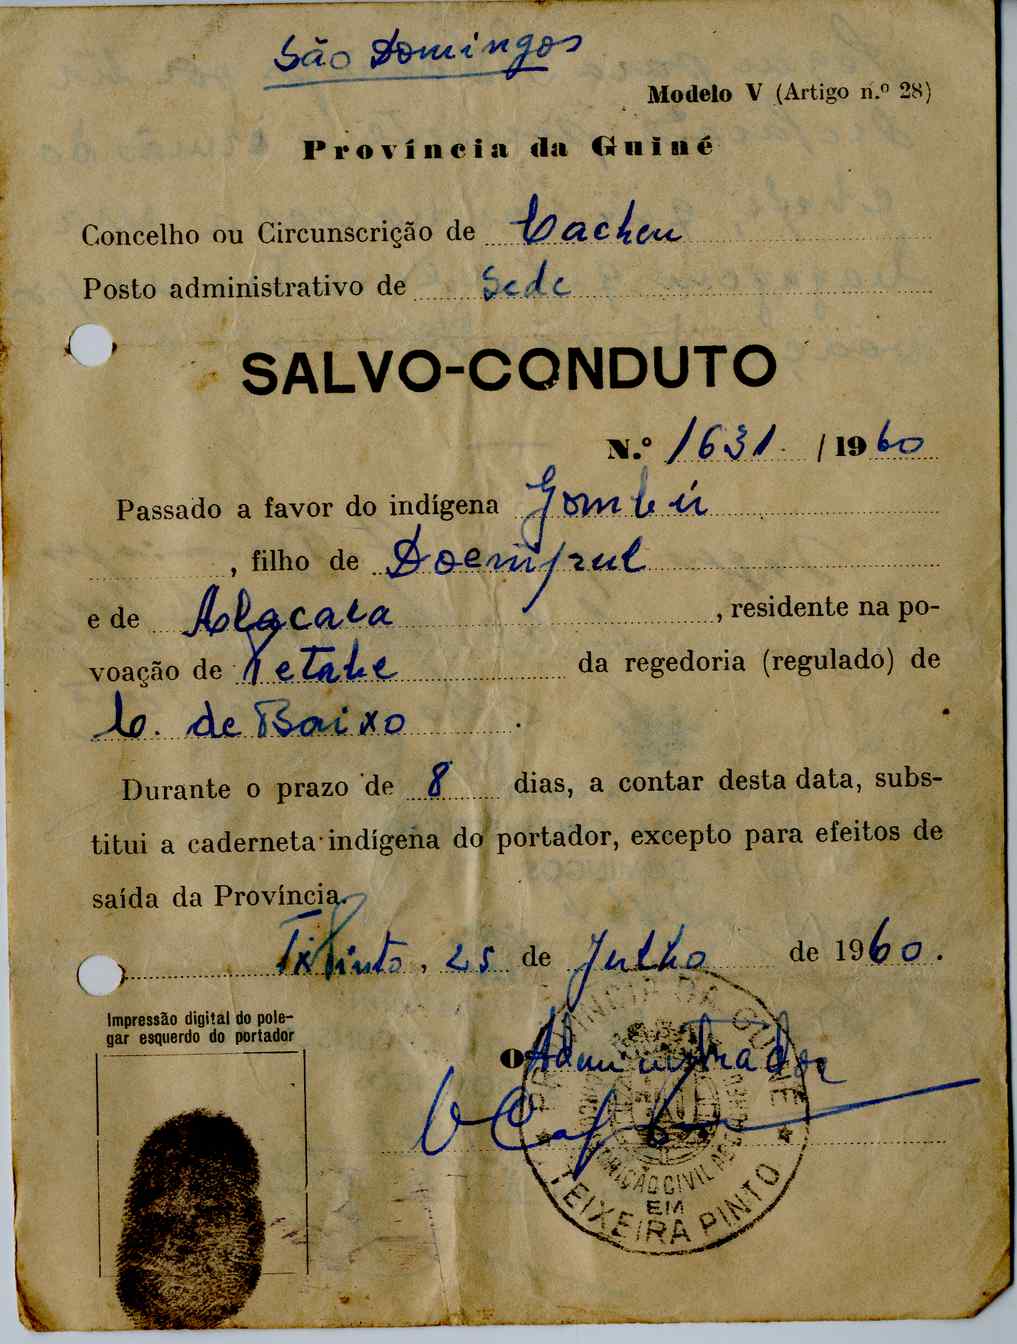 São Domingos
Modelo V (Artigo n.º 28)
Província da Guiné
Concelho ou Circunscrição de Cacheu
Posto administrativo de Sede
SALVO-CONDUTO
N.º 1631 /1960
Passado a favor do indígena Gombú
, filho de
e de , residente na po-
voação de da regedoria (regulado) de
C. de Baixo
Durante o prazo de 8 dias, a contar desta data, subs-
titui a caderneta indígena do portador, excepto para efeitos de
saída da Província.
Tx Pinto, 25 de Julho de 1960.
Impressão digital do pole-
gar esquerdo do portador
O Administrador
PROVÍNCIA DA GUINÉ
ADMINISTRAÇÃO CIVIL DE CACHEU
EM
TEIXEIRA PINTO